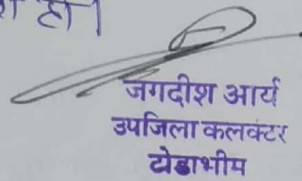 हो।
जगदीश आर्य
उपजिला कलक्टर
टोडाभीम